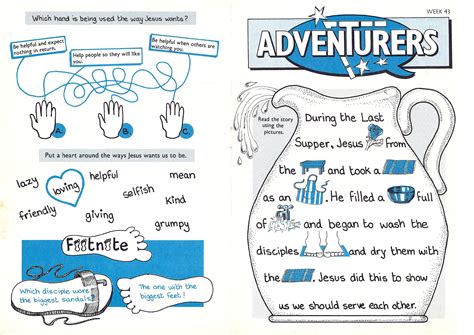 Which hand is being used the way Jesus wants?
Be helpful and expect
nothing in return.
Help people so they will like
you.
Be helpful when others are
watching you.
A.
B.
C.
Put a heart around the ways Jesus wants us to be.
lazy
loving
helpful
mean
selfish
friendly
giving
Kind
grumpy
Footnote
Which disciple wore
the biggest sandals?
The one with the
biggest feet!
WEEK 43
ADVENTURERS
Read the story
using the
pictures.
During the Last
Supper, Jesus from
the and took a
as an . He filled a full
of and began to wash the
disciples and dry them with
the . Jesus did this to show
us we should serve each other.